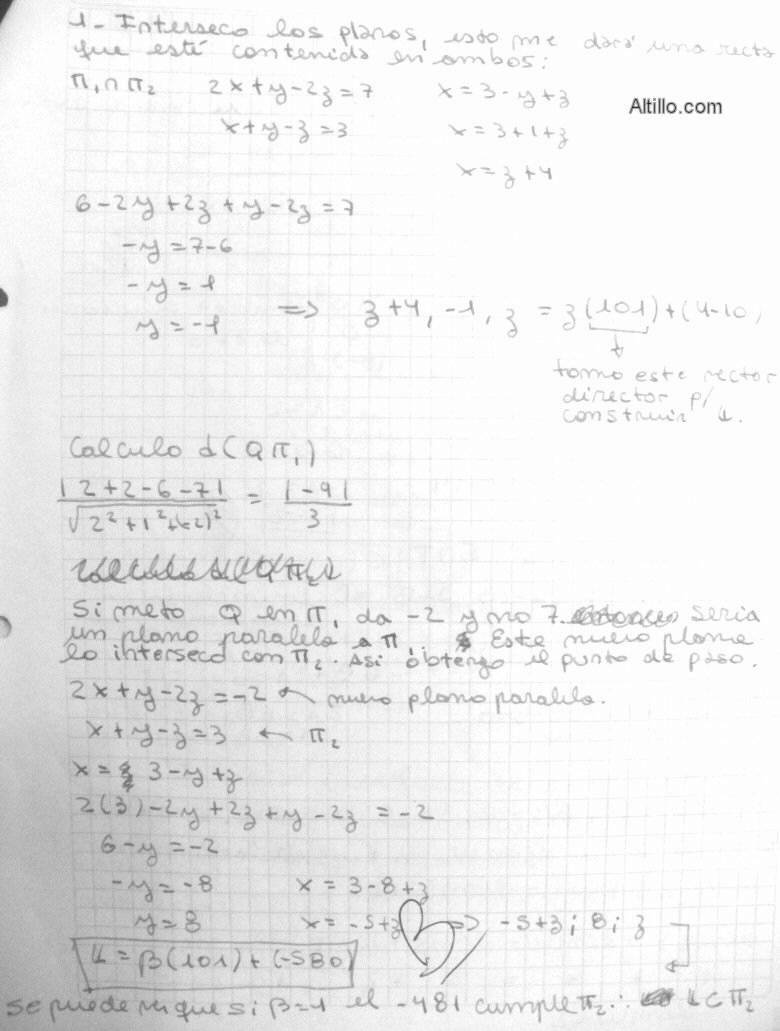 1- Interseco los planos, esto me dará una recta
que esté contenida en ambos:
π₁∩π₂ 2x+y-2z=7 x=3-y+z
Altillo.com
x+y-z=3 x=3+1+z
x=z+4
6-2y+2z+y-2z=7
-y=7-6
-y=1
y=-1 => z+4, -1, z = z(101)+(4-10)
tomo este vector
director p/
construir L.
Calculo d(Qπ₁)
|2+2-6-7| / √(2²+1²+(-2)²) = |-9| / 3
Si meto Q en π₁ da -2 y no 7. seria
un plano paralelo a π₁. Este nuevo plano
lo interseco con π₂. Asi obtengo el punto de paso.
2x+y-2z=-2 ← nuevo plano paralelo.
x+y-z=3 ← π₂
x= 3-y+z
2(3)-2y+2z+y-2z = -2
6-y=-2
-y=-8 x=3-8+z
y=8 x=-5+z => -5+z; 8; z
L=β(101)+(-580)
se puede ver que si β=1 el -481 cumple π₂ ∴ L⊂π₂